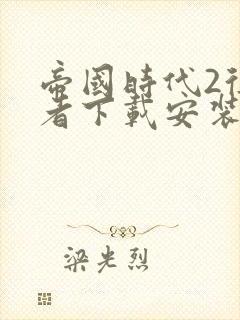 帝國時代2征
者下載安裝
梁光烈